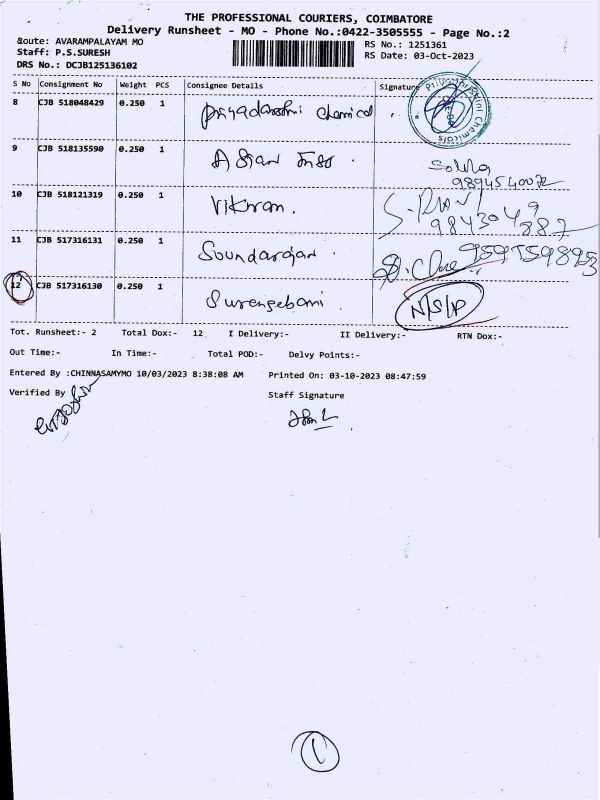 THE PROFESSIONAL COURIERS, COIMBATORE
Delivery Runsheet - MO - Phone No.:0422-3505555 - Page No.:2
Route: AVARAMPALAYAM MO
RS No.: 1251361
Staff: P.S.SURESH
RS Date: 03-Oct-2023
DRS No.: DCJB125136102
S No Consignment No Weight PCS Consignee Details Signature
8 CJB 518048429 0.250 1 Priyadarshni Chemical
9 CJB 518135590 0.250 1
9894540072
10 CJB 518121319 0.250 1 Vikram.
9843049887
11 CJB 517316131 0.250 1 Soundarajan
9597598953
12 CJB 517316130 0.250 1
N/S/P
Tot. Runsheet:- 2 Total Dox:- 12 I Delivery:- II Delivery:- RTN Dox:-
Out Time:- In Time:- Total POD:- Delvy Points:-
Entered By :CHINNASAMYMO 10/03/2023 8:38:08 AM Printed On: 03-10-2023 08:47:59
Verified By
Staff Signature
1